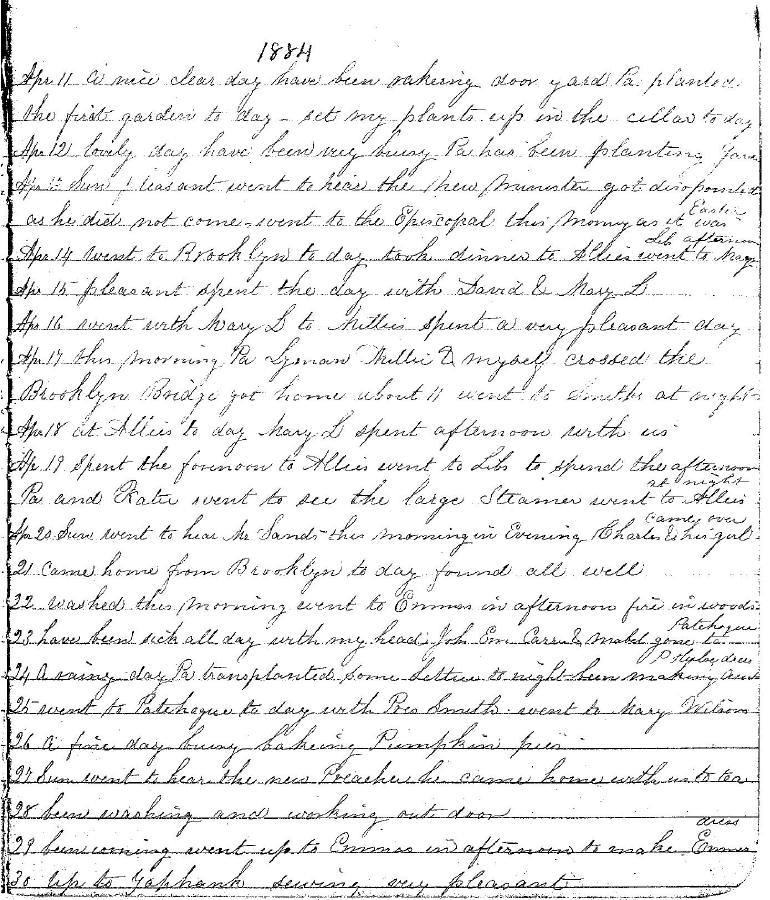 1884
Apr 11 A nice clear day have been rakeing door yard Pa planted
the first garden to day - set my plants up in the cellar to day
Apr 12 lovely day have been very busy Pa has been planting
Apr 13 Sun pleasant went to hear the new minister got disapointed
as he did not come - went to the Episcopal this morning as it was Easter
Apr 14 went to Brooklyn to day took dinner to Allies went to Libs afternoon
Apr 15 pleasant spent the day with David & Mary L
Apr 16 went with Mary L to Millies spent a very pleasant day
Apr 17 this morning Pa Lyman Millie & myself crossed the
Brooklyn Bridge got home about 11 went to Smiths at night
Apr 18 at Allies to day Mary L spent afternoon with us
Ap 19 Spent the forenoon to Allies went to Libs to spend the afternoon
Pa and Katie went to see the large Steamer went to Allies at night
Apr 20 Sun went to hear Mr Sands this morning in Evening Charles & his girl came over
21 came home from Brooklyn to day found all well
22 washed this morning went to Emmas in afternoon fire in woods
23 have been sick all day with my head Joh Em Carrie & Mabel gone to Patchogue
24 A rainy day Pa transplanted some Lettice to night been making dress
25 went to Patchogue to day with Pres Smith - went to Mary Wilsons
26 A fine day busy bakeing Pumpkin pies
27 Sun went to hear the new Preacher he came home with us to tea
28 been washing and working out door
29 been ironing went up to Emmas in afternoon to make Emmas dress
30 Up to Yaphank sewing very pleasant